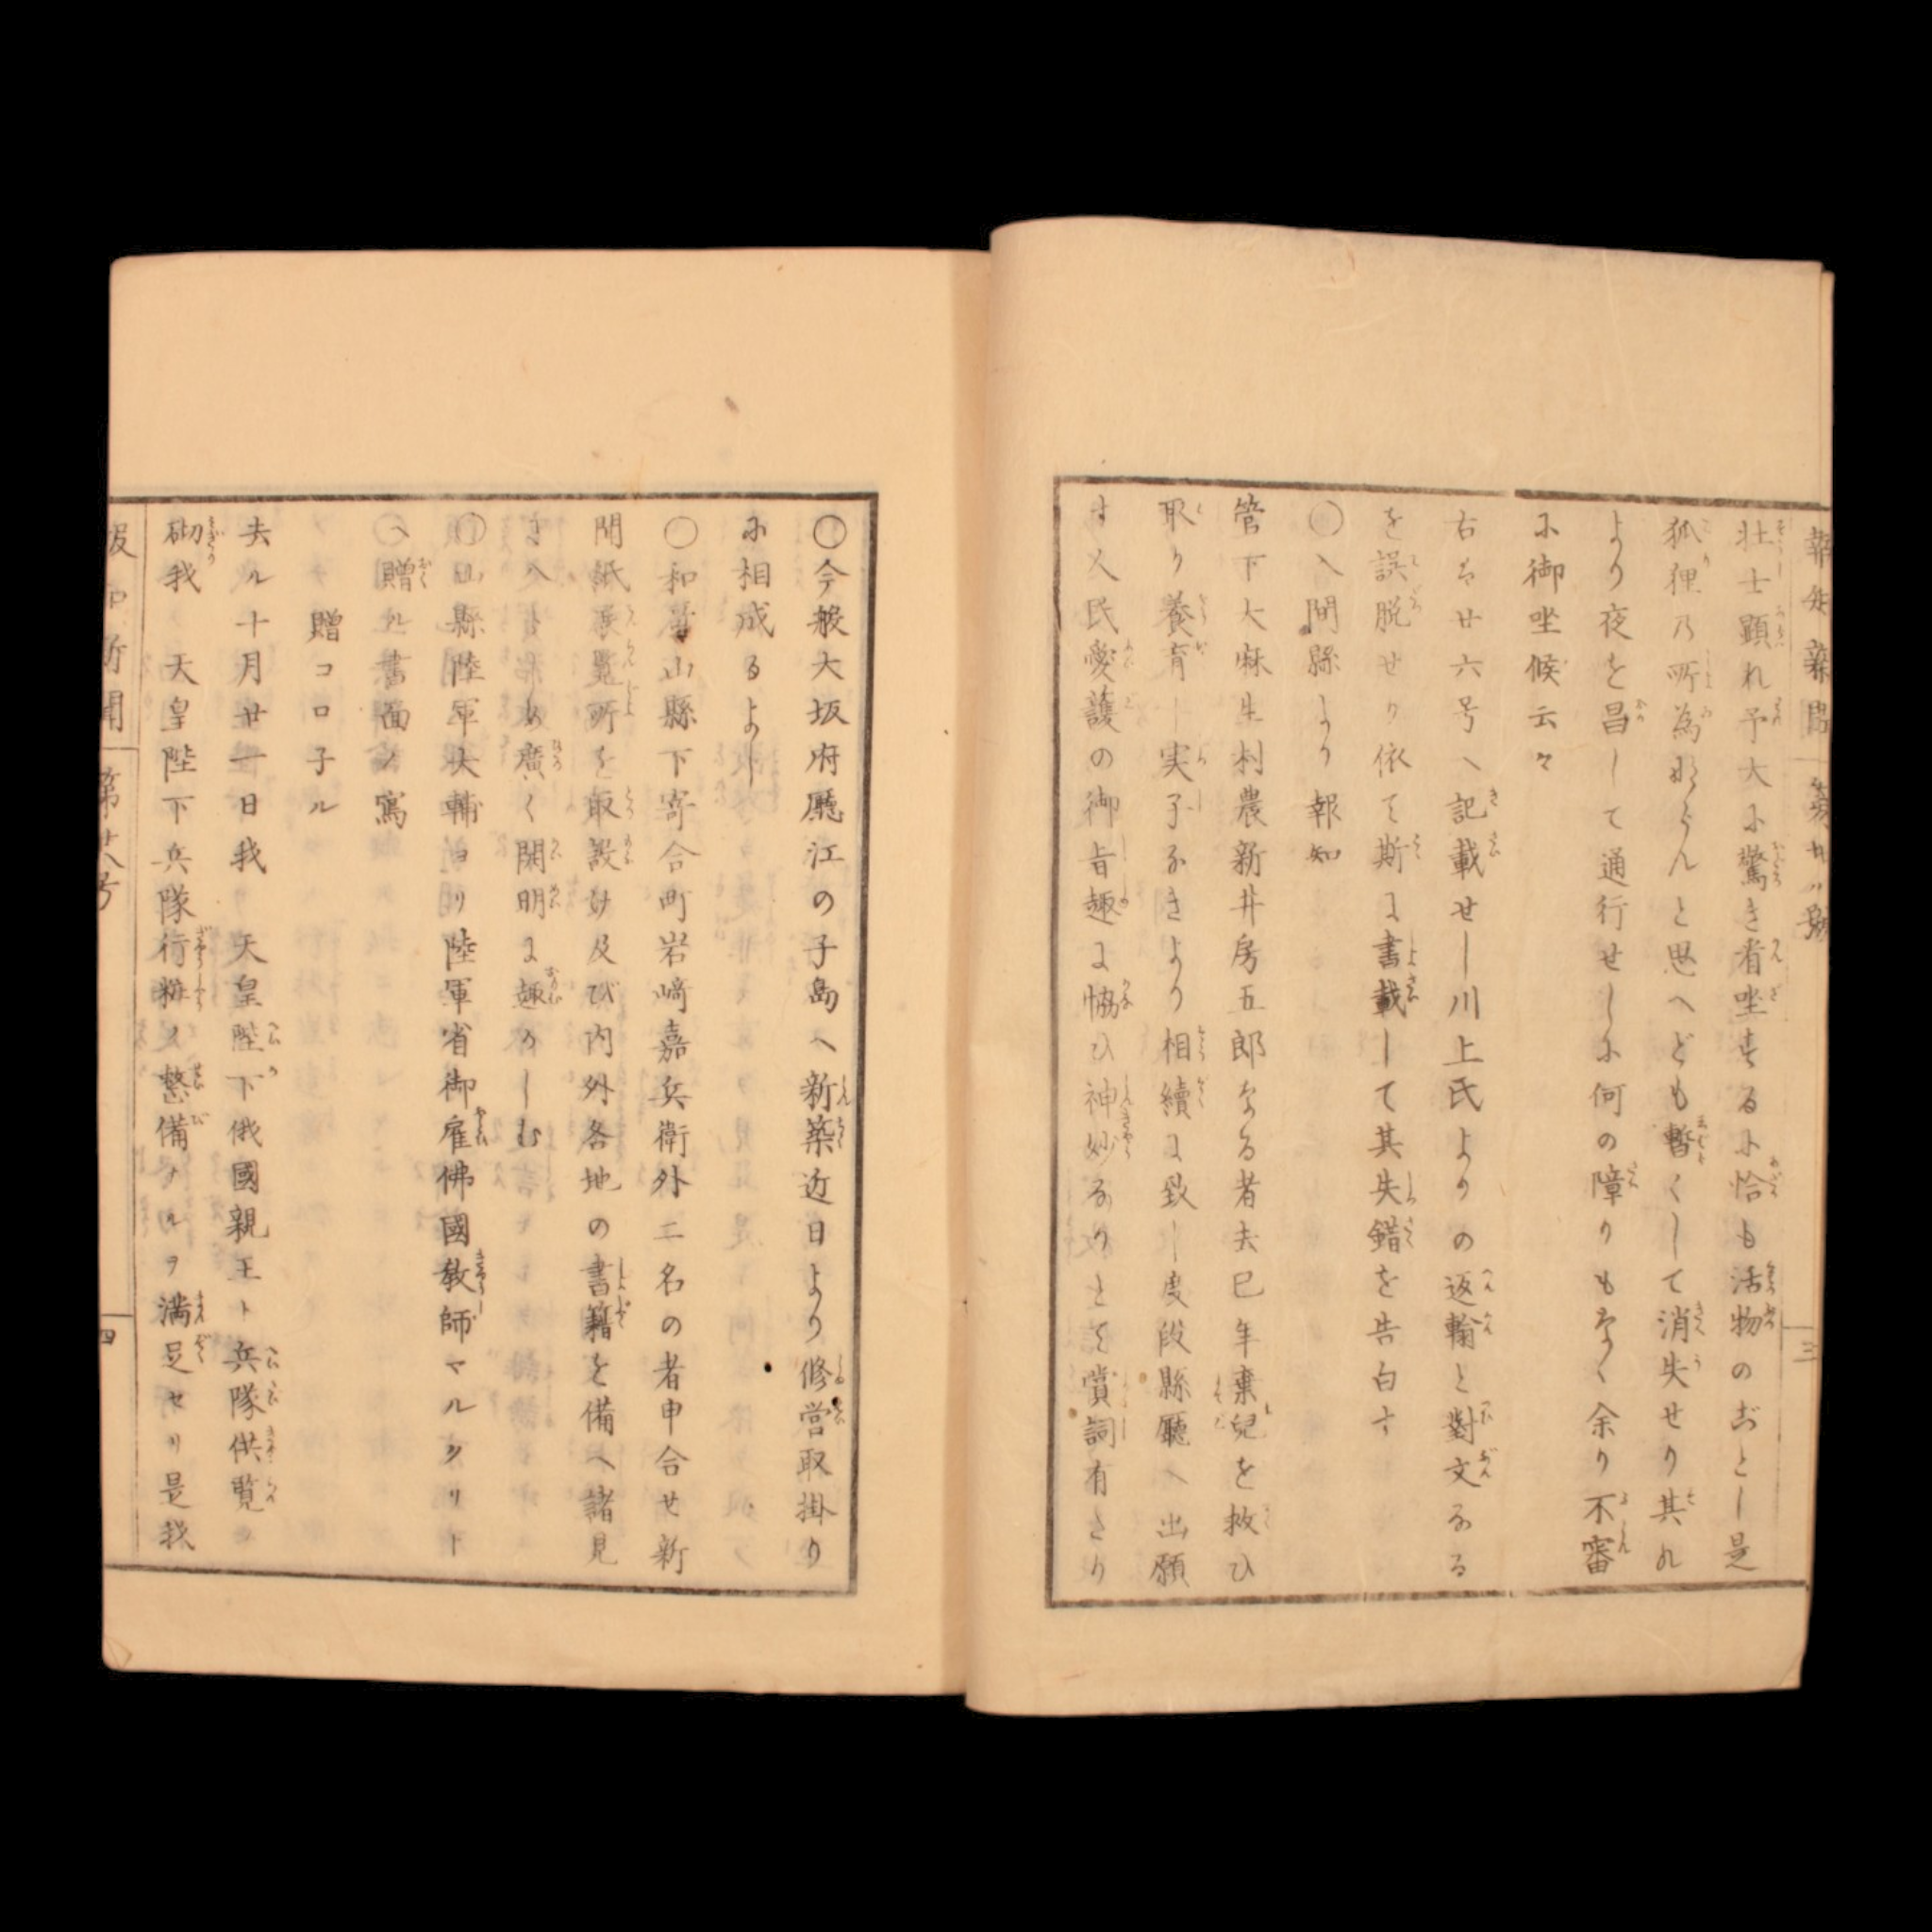 壮士顕れ予大に驚き看坐するに恰も活物のごとし是
狐狸乃所為ならんと思へども暫くして消失せり其れ
より夜を冒して通行せしに何の障りもなく余り不審
に御坐候云々
右は廿六号へ記載せし川上氏よりの返翰と對文なる
を誤脱せり依て斯に書載して其失錯を告白す
〇入間縣より報知
管下大麻生村農新井房五郎なる者去巳年棄兒を救ひ
取り養育し実子なきより相續に致し度段縣廳へ出願
す人民愛護の御旨趣に恊ひ神妙なりとて賞詞有たり
報知新聞 第廿八號 三
〇今般大坂府廳江の子島へ新築近日より修営取掛り
に相成るよし
〇和哥山縣下寄合町岩﨑嘉兵衛外二名の者申合せ新
聞紙展覧所を取設け及び内外各地の書籍を備へ諸見
さへ廣く開明に趣かしむ
〇山縣陸軍大輔ヨリ陸軍省御雇佛國教師マルクリー
ヘ贈ル書面ノ寫
贈コロ子ル
去ル十月廿一日我 天皇陛下俄國親王ト兵隊供覧ノ
砌我 天皇陛下兵隊行粧ノ整備ナルヲ満足セリ是我
報知新聞 第廿八号 四